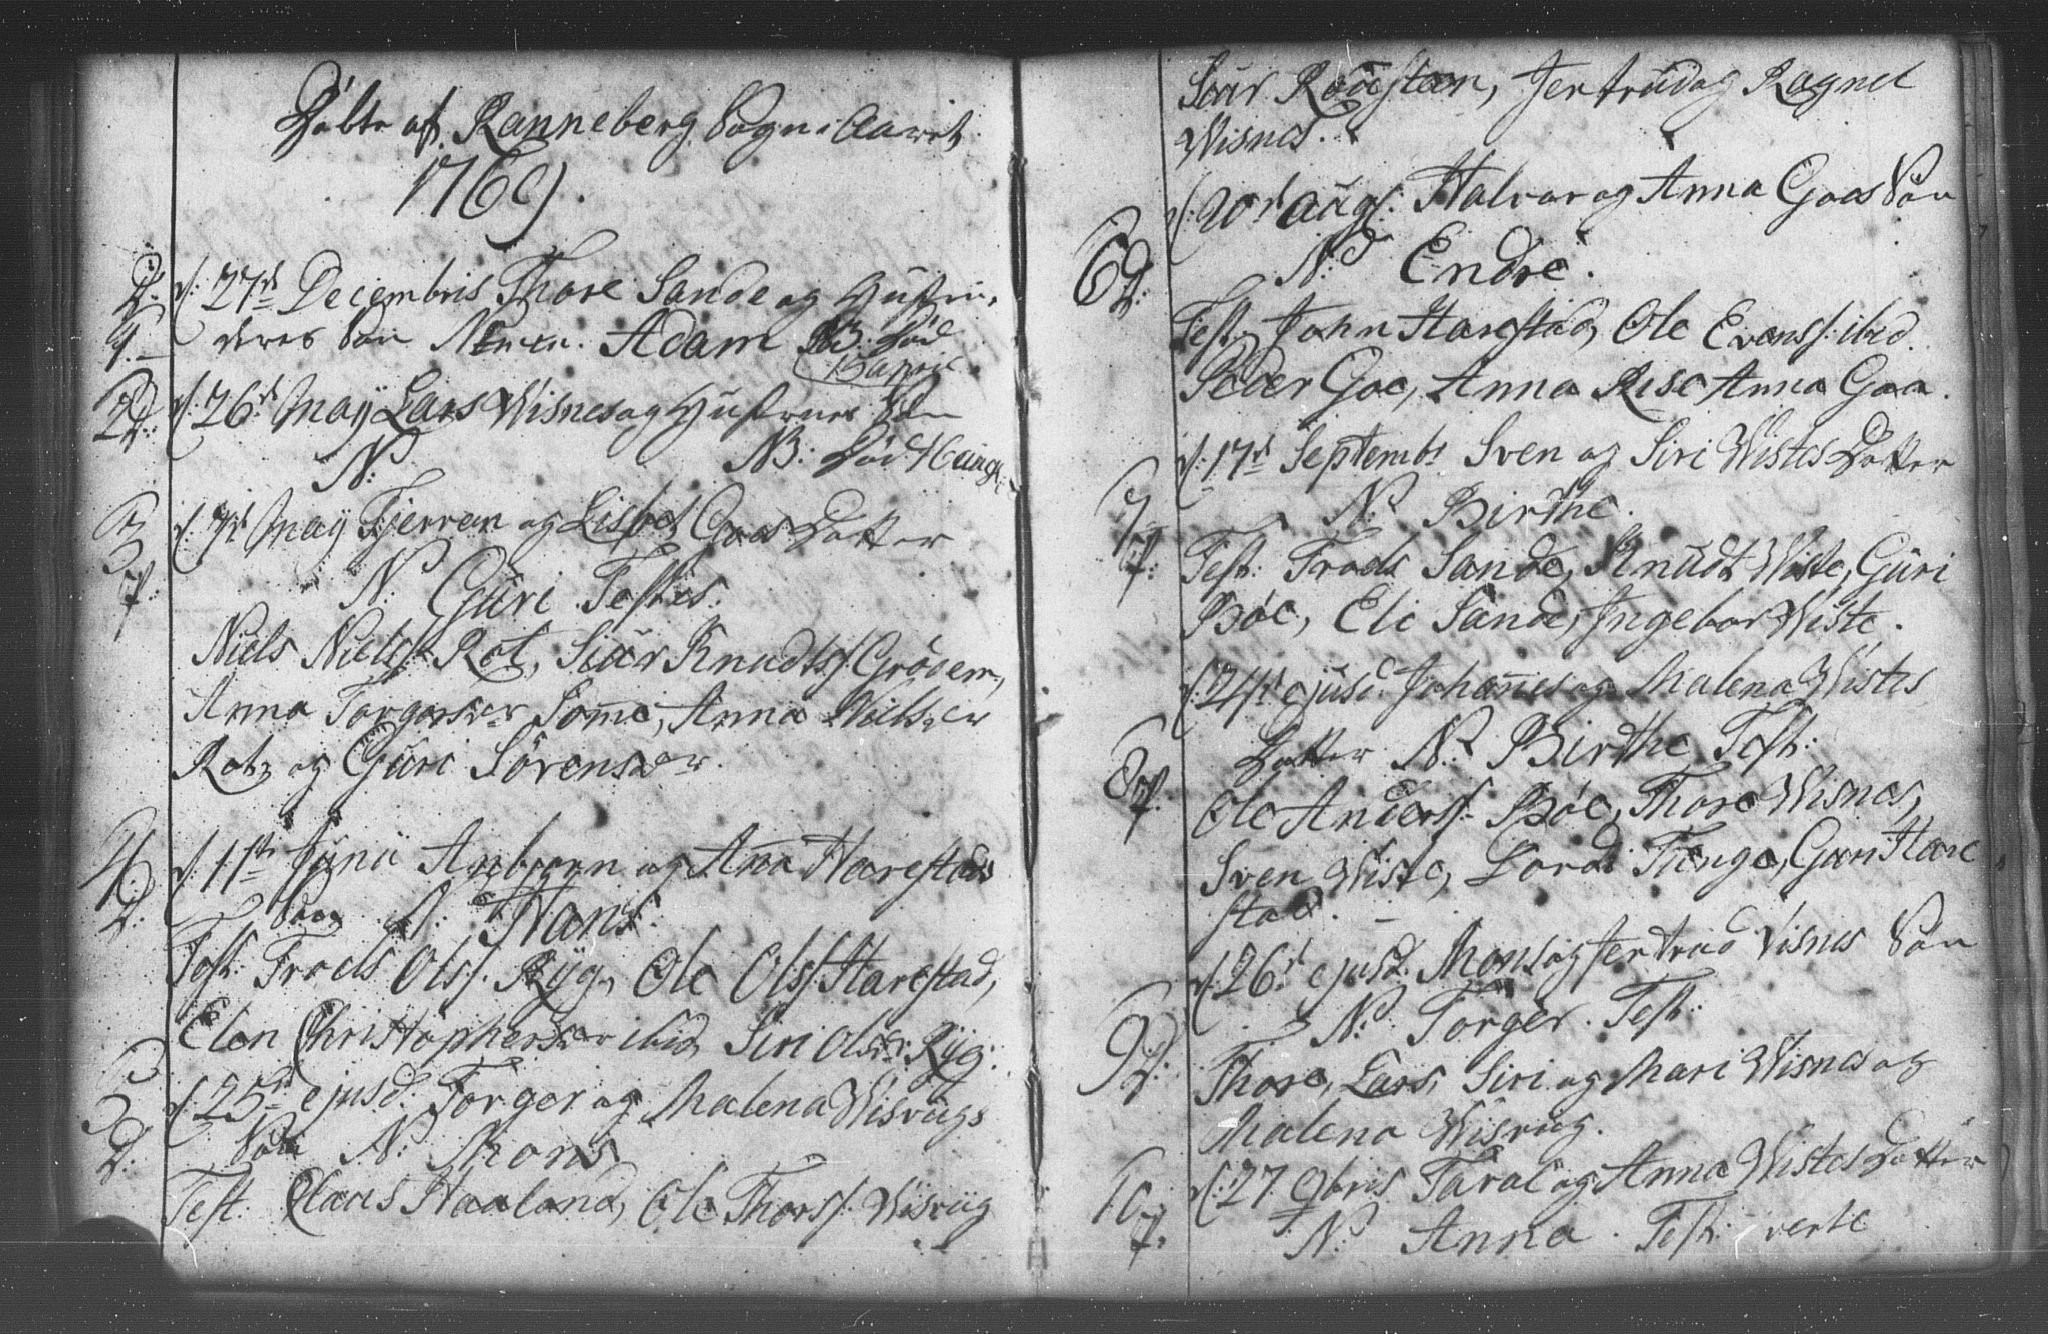 Døbte af Ranneberg Sogn i Aaret
1769.
D. d: 27de Decembris Thore Sande og Hustru,
1. deres Søn Nomin. Adam NB. Død
April
2 D. d: 26de May Lars Wisnes og Hustrues Søn
N. NB: Død
3 d: May Tjerran og Lisbet Goas Datter
N. Güri Testes.
Niels Nielss. Rot, Siúr Knudts. Grødem,
Anna Torgersdr Some, Anna Nielsdr
Rot og Güri Sørensdr.
4 d: 1ste Junii Anbjørn og Anna Harestads
D. Søn N. Hans.
Test: Troels Olss. Ryg, Ole Olss. Harestad,
Elen Christophersdr ibid, Siri Olsdr Ryg.
5 d: 25de ejusd. Torger og Malena Wisvügs
D. Søn N. Mons
Test. Claus Haaland, Ole Thorss. Wisvüg
Siúr Jertrud og Ragnel
Wisnes.
d: 20de Aug. Halvor og Anna Goas Søn
6 D. N. Endre.
Test, John Harestad, Ole Evenss. ibid.
Peder Goe, Anna Rise Anna Goa.
d: 17de Septembr Sven og Siri Wistes Datter
7 N. Birthe.
Test: Troels Sande, Knüdt Wiste, Güri
Bøe, Eli Sande, Ingebor Wiste.
d: 24de ejusd. Johannes og Malena Wistes
8 Datter N. Birthe Test:
Ole Anderss. Bøe, Thore Wisnes,
Sven Wiste, Tunge, Harestad.
d: 26de ejusd. Mons og Jertrud Visnes Søn
9 D. N. Torger. Test:
Thore, Lars, Siri og Mari Wisnes og
Malena Wisvüg.
10 d: 27 9bris Taral og Anna Wistes Datter
N. Anna. Test: verte